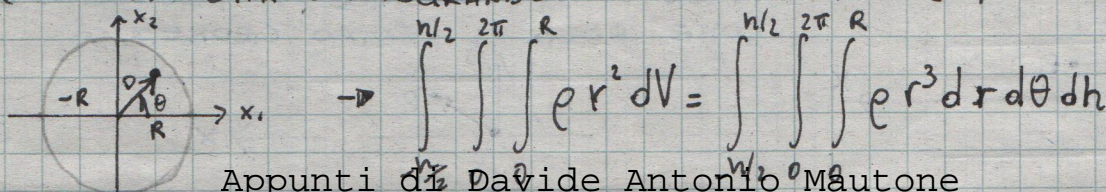 x₂
r
θ
-R
R
x₁
→ ∫_{-h/2}^{h/2} ∫_0^{2π} ∫_0^R ρ r² dV = ∫_{h/2}^{h/2} ∫_0^{2π} ∫_0^R ρ r³ dr dθ dh
Appunti di Davide Antonio Mautone